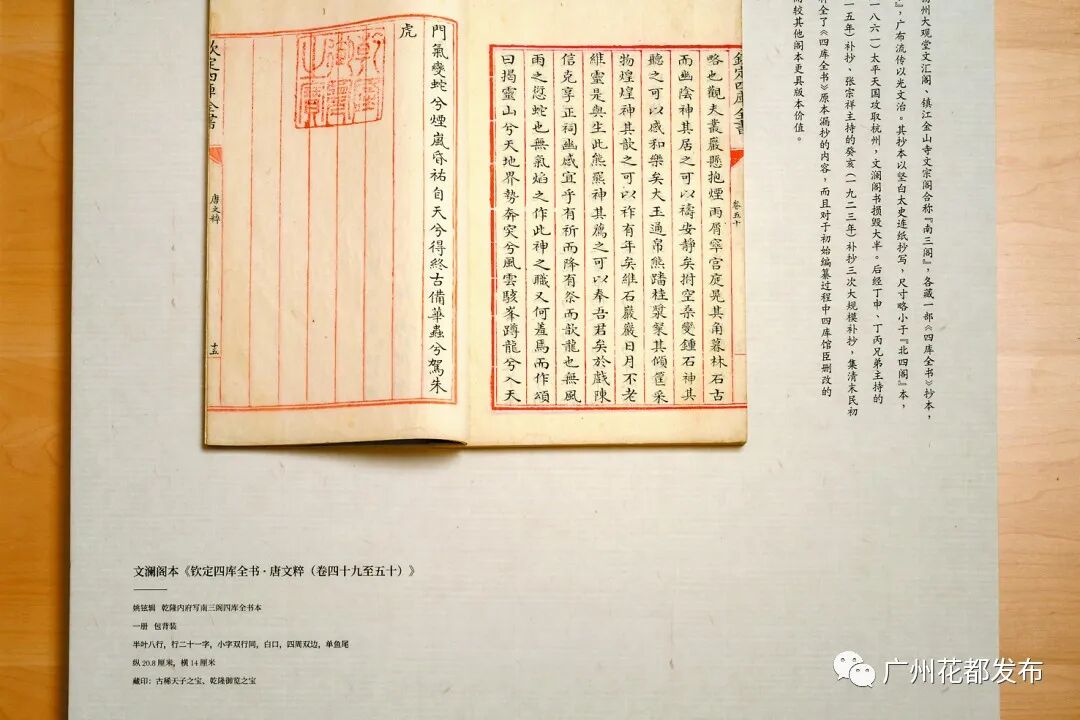 州大观堂文汇阁、镇江金山寺文宗阁合称『南三阁』，各藏一部《四库全书》抄本，
』，广布流传以光文治。其抄本以坚白太史连纸抄写，尺寸略小于『北四阁』本，
一八六一）太平天国攻取杭州，文澜阁书损毁大半。后经丁申、丁丙兄弟主持的
五年）补抄、张宗祥主持的癸亥（一九二三年）补抄三次大规模补抄，集清末民初
全了《四库全书》原本漏抄的内容，而且对于初始编纂过程中四库馆臣删改的
较其他阁本更具版本价值。
欽定四庫全書
卷五十
略也觀夫叢巖懸抱煙雨屑寧宮庭晃其角暮林石古
而幽陰神其居之可以禱安静矣拊空桑變鍾石神其
聽之可以感和樂矣大玉通帛熊蹯桂漿菜其傾筐采
物煌煌神其歆之可以祚有年矣維石巖巖日月不老
維靈是與生此熊羆神其薦之可以奉吾君矣於戲陳
信克享正祠幽感宜乎有祈而降有祭而歆龍也無風
雨之愆蛇也無氣焰之作此神之職又何羞焉而作頌
曰揭靈山兮天地界勢奔突兮風雲駭峯蹲龍兮入天
門氣變蛇兮煙嵐昏祐自天兮得終古備華蟲兮駕朱
虎
乾隆御覽之寶
欽定四庫全書
唐文粹
十五
文澜阁本《钦定四库全书·唐文粹（卷四十九至五十）》
姚铉辑 乾隆内府写南三阁四库全书本
一册 包背装
半叶八行，行二十一字，小字双行同，白口，四周双边，单鱼尾
纵 20.8 厘米，横 14 厘米
藏印：古稀天子之宝、乾隆御览之宝
广州花都发布